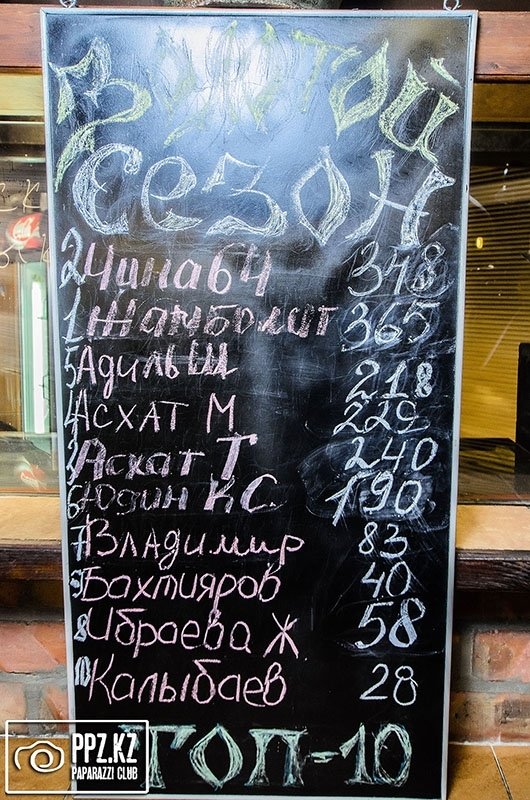 Золотой
Сезон
2 Чинавч 348
1 Жамболат 365
5 Адиль Ш 218
4 Асхат М 229
3 Асхат Т 240
6 Юдин КС 190
7 Владимир 83
9 Бахтияров 40
8 Ибраева Ж 58
10 Калыбаев 28
ТОП-10
PPZ.KZ
PAPARAZZI CLUB